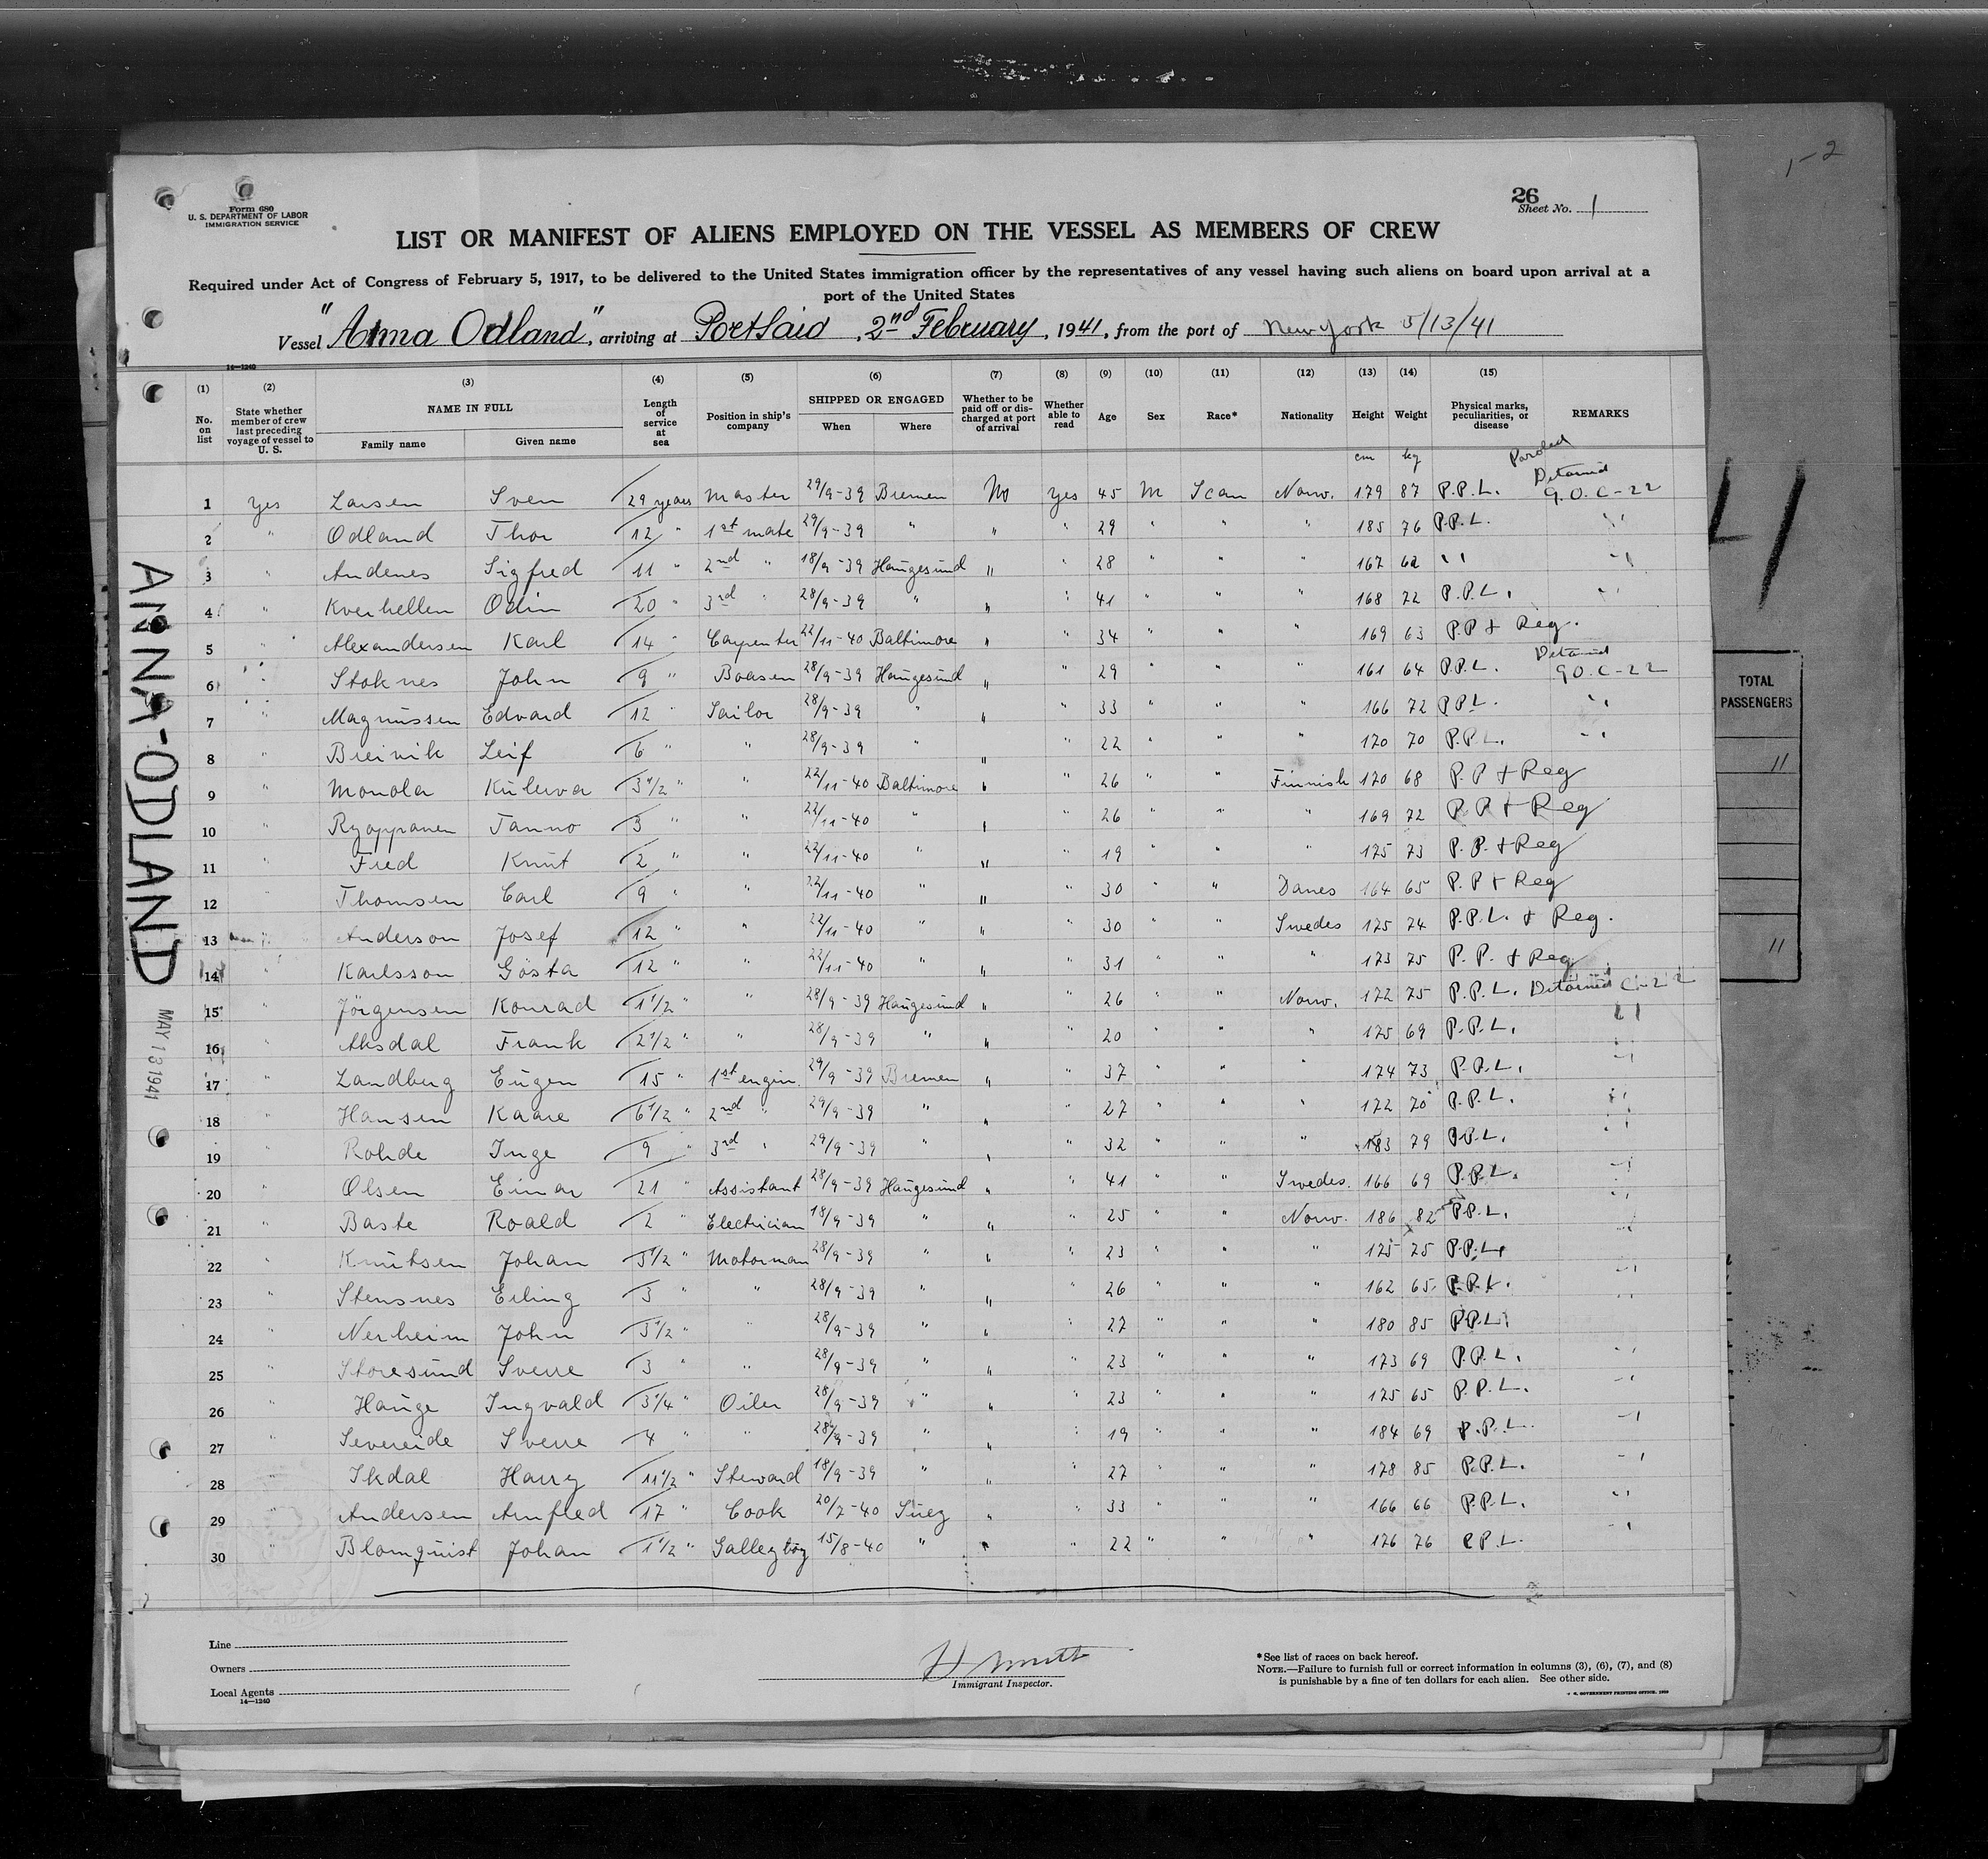 1-2
26
Form 680
U. S. DEPARTMENT OF LABOR
IMMIGRATION SERVICE
Sheet No. 1
LIST OR MANIFEST OF ALIENS EMPLOYED ON THE VESSEL AS MEMBERS OF CREW
Required under Act of Congress of February 5, 1917, to be delivered to the United States immigration officer by the representatives of any vessel having such aliens on board upon arrival at a
port of the United States
Vessel "Anna Odland", arriving at PortSaid, 2nd February, 1941, from the port of New York 5/13/41
14—1240
(1) (2) (3) (4) (5) (6) (7) (8) (9) (10) (11) (12) (13) (14) (15)
No. on list State whether member of crew last preceding voyage of vessel to U. S. NAME IN FULL Family name Given name Length of service at sea Position in ship's company SHIPPED OR ENGAGED When Where Whether to be paid off or discharged at port of arrival Whether able to read Age Sex Race* Nationality Height Weight Physical marks, peculiarities, or disease REMARKS
cm kg Paroled
Detained
1 yes Larsen Sven 29 years master 29/9-39 Bremen No yes 45 M Scan Norw. 179 87 P.P.L. 9.O.C-22
2 " Odland Thor 12 " 1st mate 29/9-39 " " " 29 " " " 185 76 P.P.L. "
3 " Andenes Sigfred 11 " 2nd " 18/9-39 Haugesund " " 28 " " " 167 62 " "
4 " Kverhellen Odin 20 " 3rd " 28/9-39 " " " 41 " " " 168 72 P.P.L. "
5 " Alexandersen Karl 14 " Carpenter 22/11-40 Baltimore " " 34 " " " 169 63 P.P & Reg.
Detained
6 " Stoknes John 9 " Boasen 28/9-39 Haugesund " " 29 " " " 161 64 P.P.L. 9.O.C-22
7 " Magnussen Edvard 12 " Sailor 28/9-39 " " " 33 " " " 166 72 P.P.L. "
8 " Breivik Leif 6 " " 28/9-39 " " " 22 " " " 170 70 P.P.L. "
9 " Monola Kulerva 3 1/2 " " 22/11-40 Baltimore " " 26 " " Finnish 170 68 P.P & Reg
10 " Ryoppanen Tanno 3 " " 22/11-40 " " " 26 " " " 169 72 P.P & Reg
11 " Fred Knut 2 " " 22/11-40 " " " 19 " " " 175 73 P.P. & Reg
12 " Thomsen Carl 9 " " 22/11-40 " " " 30 " " Danes 164 65 P.P & Reg
13 " Anderson Josef 12 " " 22/11-40 " " " 30 " " Swedes 175 74 P.P.L. & Reg.
14 " Karlsson Gösta 12 " " 22/11-40 " " " 31 " " " 173 75 P.P. & Reg.
15 " Jörgensen Konrad 1 1/2 " " 28/9-39 Haugesund " " 26 " " Norw. 172 75 P.P.L. Detained C-22
16 " Aksdal Frank 2 1/2 " " 28/9-39 " " " 20 " " " 175 69 P.P.L. "
17 " Landberg Eugen 15 " 1st engin. 29/9-39 Bremen " " 37 " " " 174 73 P.P.L. "
18 " Hansen Kaare 6 1/2 " 2nd " 29/9-39 " " " 27 " " " 172 70 P.P.L. "
19 " Rohde Inge 9 " 3rd " 29/9-39 " " " 32 " " " 183 79 P.P.L. "
20 " Olsen Einar 21 " Assistant 28/9-39 Haugesund " " 41 " " Swedes. 166 69 P.P.L. "
21 " Baste Roald 2 " Electrician 18/9-39 " " " 25 " " Norw. 186 82 P.P.L. "
22 " Knutsen Johan 3 1/2 " Motorman 28/9-39 " " " 23 " " " 175 75 P.P.L. "
23 " Stensnes Erling 3 " " 28/9-39 " " " 26 " " " 162 65 P.P.L. "
24 " Nerheim John 3 1/2 " " 28/9-39 " " " 27 " " " 180 85 P.P.L. "
25 " Storesund Sverre 3 " " 28/9-39 " " " 23 " " " 173 69 P.P.L. "
26 " Hauge Ingvald 3 1/4 " Oiler 28/9-39 " " " 23 " " " 175 65 P.P.L. "
27 " Severeide Sverre 4 " " 28/9-39 " " " 19 " " " 184 69 P.P.L. "
28 " Ikdal Harry 11 1/2 " Steward 18/9-39 " " " 27 " " " 178 85 P.P.L. "
29 " Andersen Arnfled 17 " Cook 20/7-40 Suez " " 33 " " " 166 66 P.P.L. "
30 " Blomquist Johan 1 1/2 " Galleyboy 15/8-40 " " " 22 " " " 176 76 P.P.L. "
ANNA-ODLAND
MAY 13 1941
TOTAL
PASSENGERS
11
11
Line
Owners
Local Agents
14—1240
Immigrant Inspector.
*See list of races on back hereof.
NOTE.—Failure to furnish full or correct information in columns (3), (6), (7), and (8)
is punishable by a fine of ten dollars for each alien. See other side.
GOVERNMENT PRINTING OFFICE